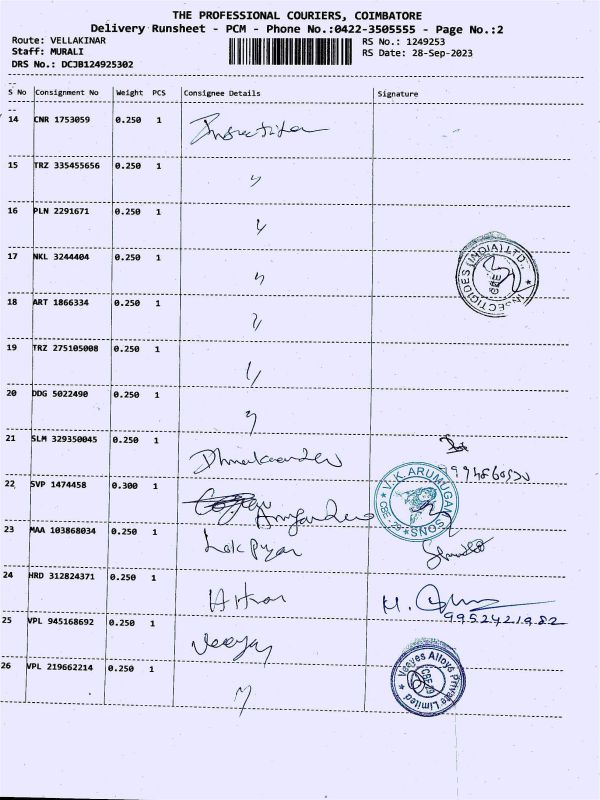 THE PROFESSIONAL COURIERS, COIMBATORE
Delivery Runsheet - PCM - Phone No.:0422-3505555 - Page No.:2
Route: VELLAKINAR
Staff: MURALI
DRS No.: DCJB124925302
RS No.: 1249253
RS Date: 28-Sep-2023
S No Consignment No Weight PCS Consignee Details Signature
14 CNR 1753059 0.250 1
15 TRZ 335455656 0.250 1
16 PLN 2291671 0.250 1
17 NKL 3244404 0.250 1
INSECTICIDES (INDIA) LTD. CBE
18 ART 1866334 0.250 1
19 TRZ 275105008 0.250 1
20 DDG 5022490 0.250 1
21 SLM 329350045 0.250 1
22 SVP 1474458 0.300 1
V.K. ARUMUGAM SONS CBE - 29
23 MAA 103868034 0.250 1
24 HRD 312824371 0.250 1
9952421982
25 VPL 945168692 0.250 1
26 VPL 219662214 0.250 1
Veeyes Alloys Private Limited CBE-29